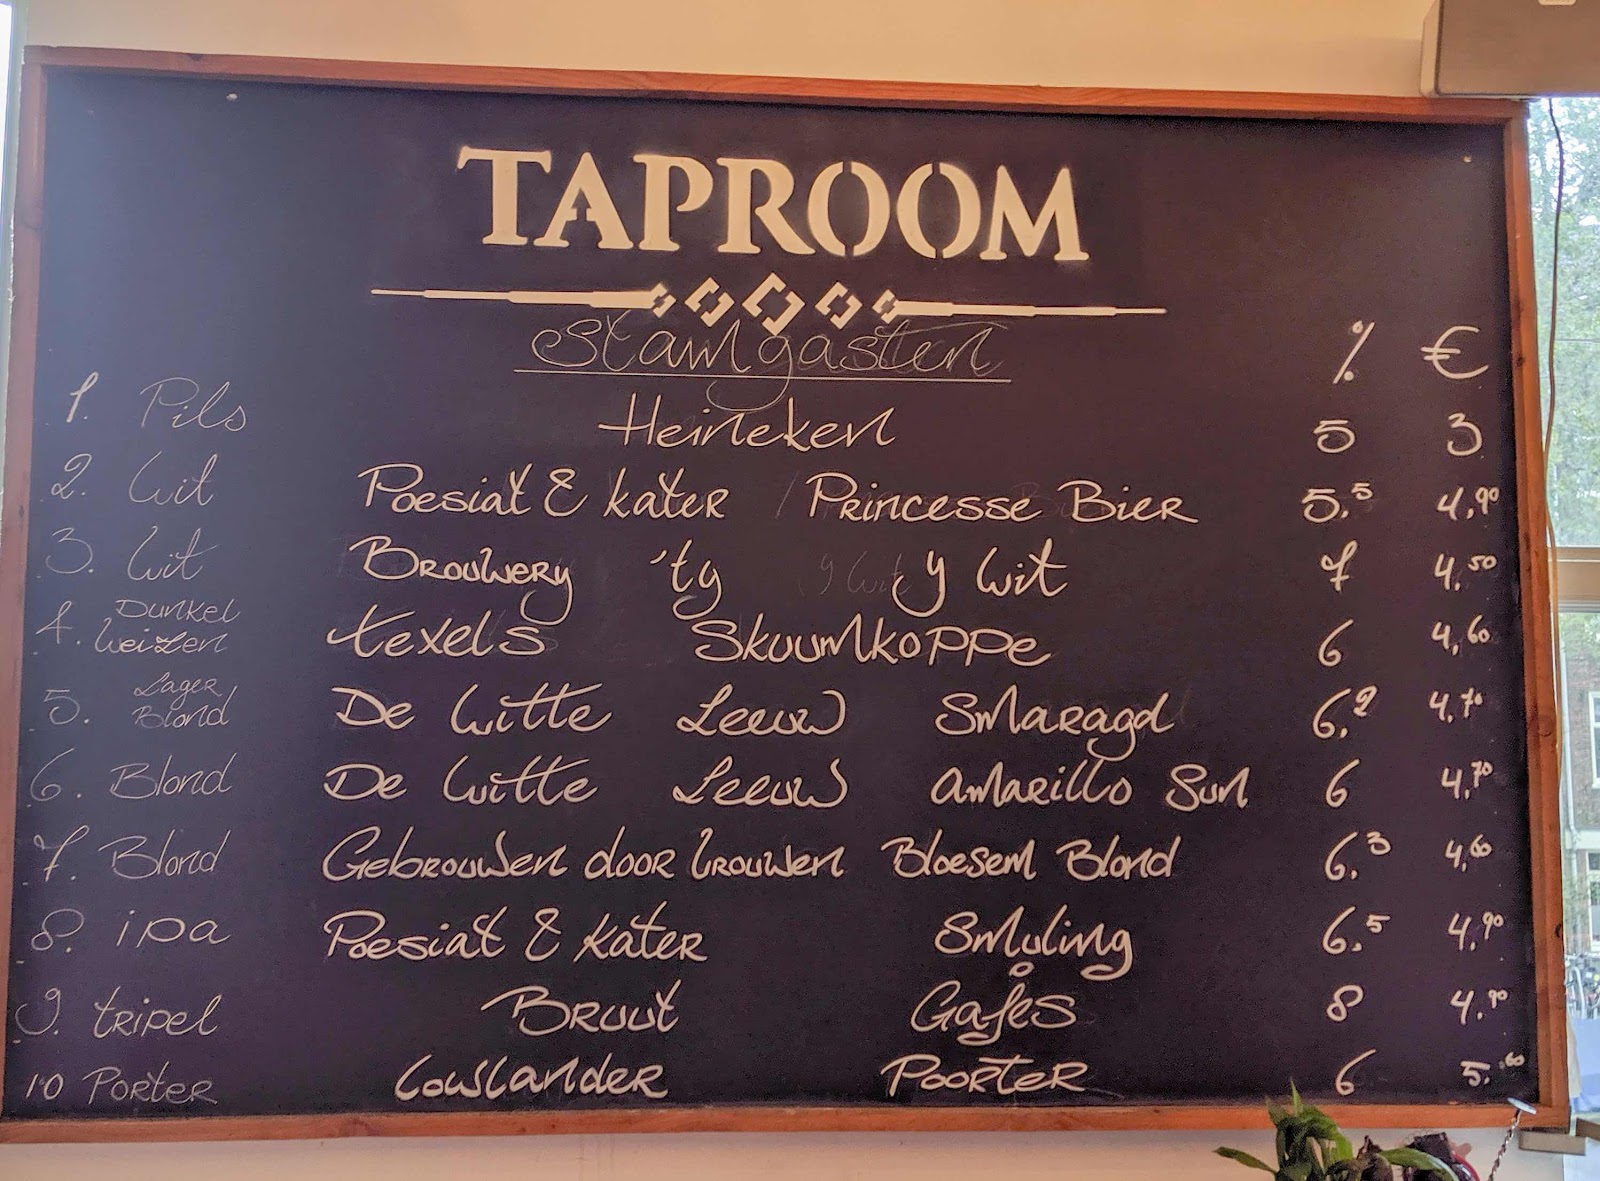 TAPROOM
Stamgasten % €
1. Pils Heineken 5 3
2. Wit Poesiat & Kater / Princesse Bier 5.5 4,90
3. Wit Brouwery 'ty y Wit 7 4,50
4. Dunkel Weizen Texels Skuumkoppe 6 4,60
5. Lager Blond De Witte Leeuw Smaragd 6.2 4,70
6. Blond De Witte Leeuw Amarillo Sun 6 4,70
7. Blond Gebrouwen door Vrouwen Bloesem Blond 6.3 4,60
8. ipa Poesiat & Kater Smuling 6.5 4,90
9. Tripel Bruut Gafes 8 4.90
10 Porter Lowlander Poorter 6 5.60